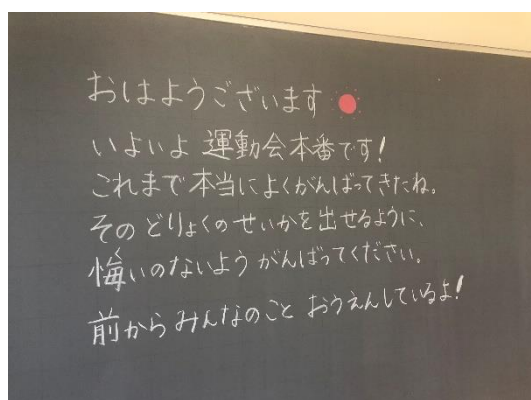 おはようございます
いよいよ 運動会本番です!
これまで本当によくがんばってきたね。
そのどりょくのせいかを出せるように、
悔いのないよう がんばってください。
前からみんなのこと おうえんしているよ!